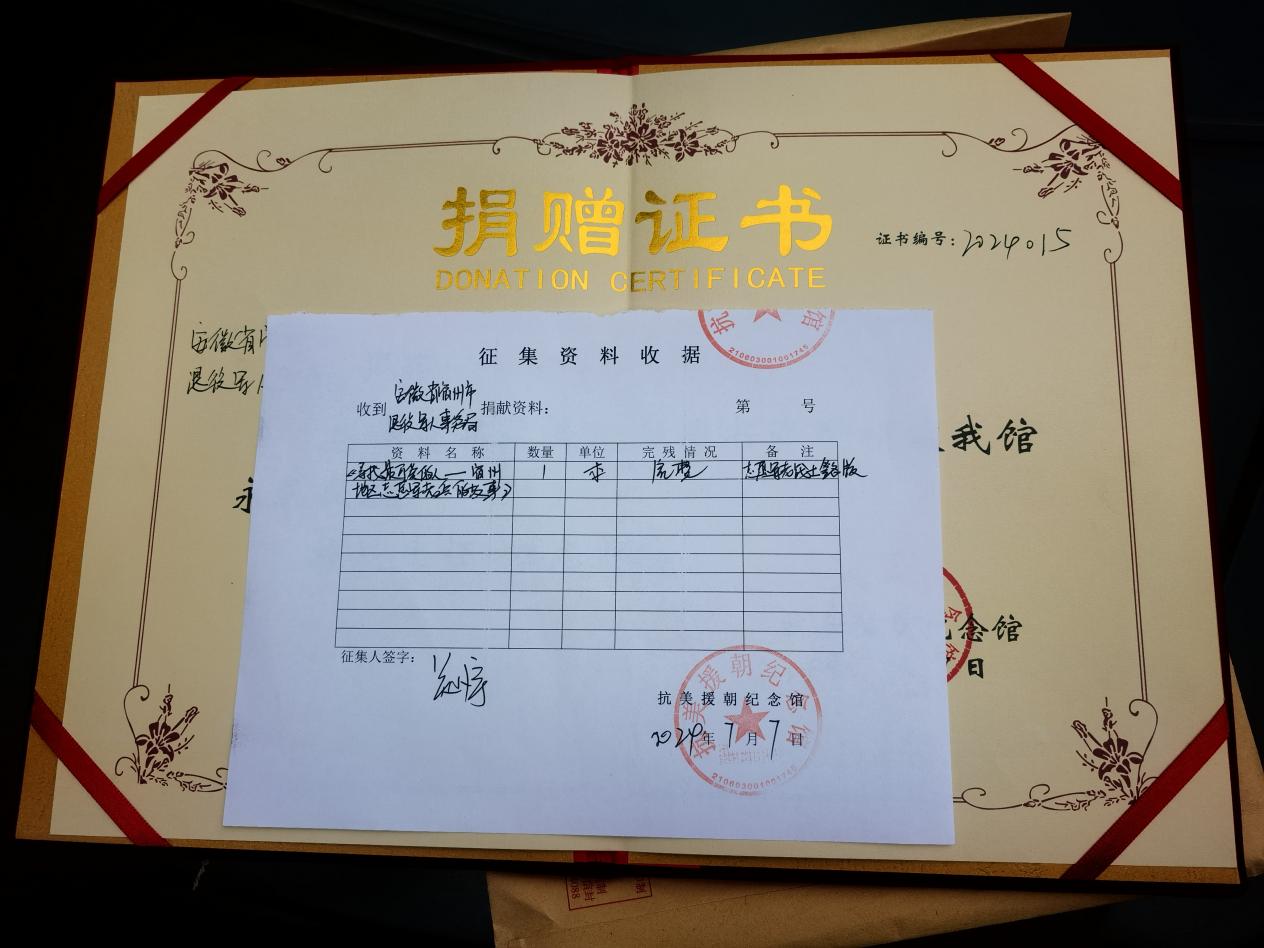 捐赠证书
DONATION CERTIFICATE
证书编号：2024015
安徽省
退役军人
我馆
永
念馆
日
征集资料收据
收到 安徽省宿州市
退役军人事务局 捐献资料：
第 号
资料名称 数量 单位 完残情况 备注
《寻找最可爱的人——宿州 1 本 完整
地区志愿军老兵的故事》
征集人签字：
抗美援朝纪念馆
2024年7月7日
抗美援朝纪念馆
210603001001745